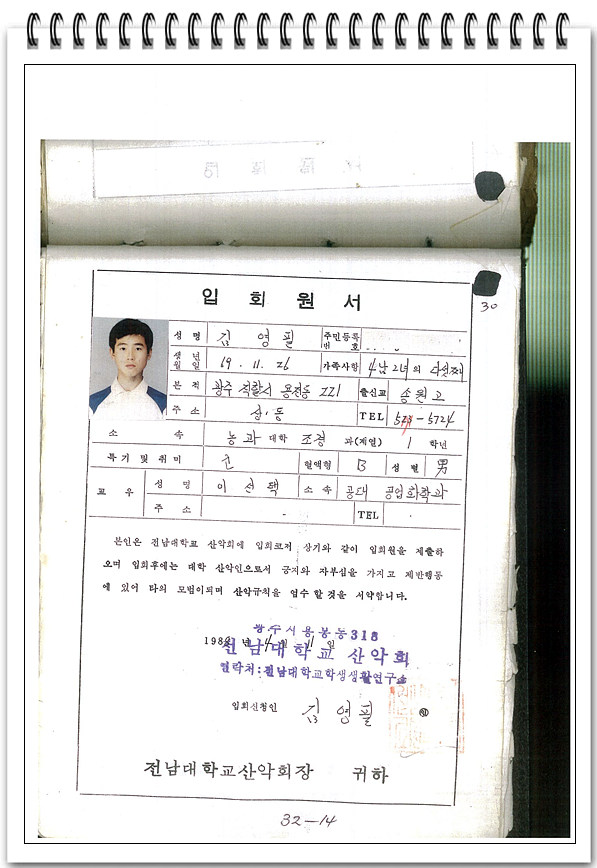 30
입 회 원 서
성 명 김 영 필 주민등록번 호
생 년 월 일 69. 11. 26 가족사항 4남 2녀의 다섯째
본 적 광주 직할시 용전동 221 출신교 송원고
주 소 상 · 동 TEL 573-5724
소 속 농과 대학 조경 과(계열) 1 학년
특기 및 취미 혈액형 B 성 별 男
교 우 성 명 이 선 택 소 속 공대 공업화학과
주 소 TEL
본인은 전남대학교 산악회에 입회코저 상기와 같이 입회원을 제출하
오며 입회후에는 대학 산악인으로서 긍지와 자부심을 가지고 제반행동
에 있어 타의 모범이되며 산악규칙을 엄수할것을 서약합니다.
광주시용봉동318
198 년 4 월 11 일
전남대학교 산악회
연락처:전남대학교학생생활연구소
입회신청인 김 영 필 ㊞
전남대학교산악회장 귀하
32-14